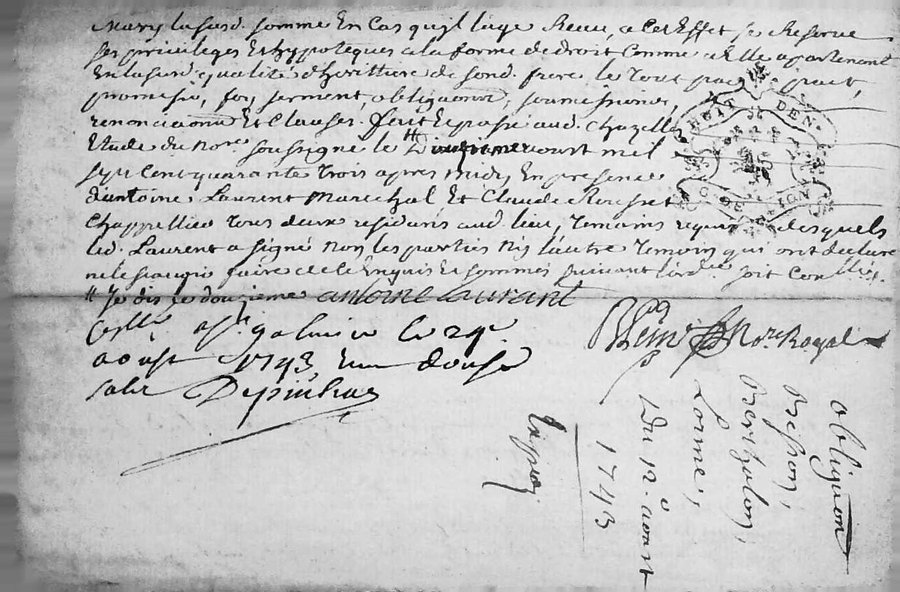 mary la susd. somme En Cas qu'jl laye Receu, a Cet Effet se Reserve
ses privileges Et hypoteques a la forme de droit Comme a Elle apartenant
En la susd. qualité d'herittiere de sond. frere le tout par
promesse, foy, serment, obligations, soumissions,
renonciations Et Clauses. fait Et passé aud. Chazelles
Etude du nore. sousigné le # Courant mil
sept Cent quarante Trois apres midy En presence
d'antoine Laurent Marechal Et Claude Rousset
Chappellier tous deux residants aud. lieu, temoins requis desquels
led. Laurent a signé non les parties Ny l'autre temoin qui ont declaré
ne le scavoir faire de ce Enquis Et sommés suivant lord.ce soit Con.llé
# Je dis le douzieme antoine laurant
Con.llé a St galmier le 24e
aoust 1743, Reçu douse
sols Depinhac
No.re Royal
DROIT DEN.
obligaon
Brisson,
Berthelon,
Lorme,
Du 12e. aoust
1743
Exped